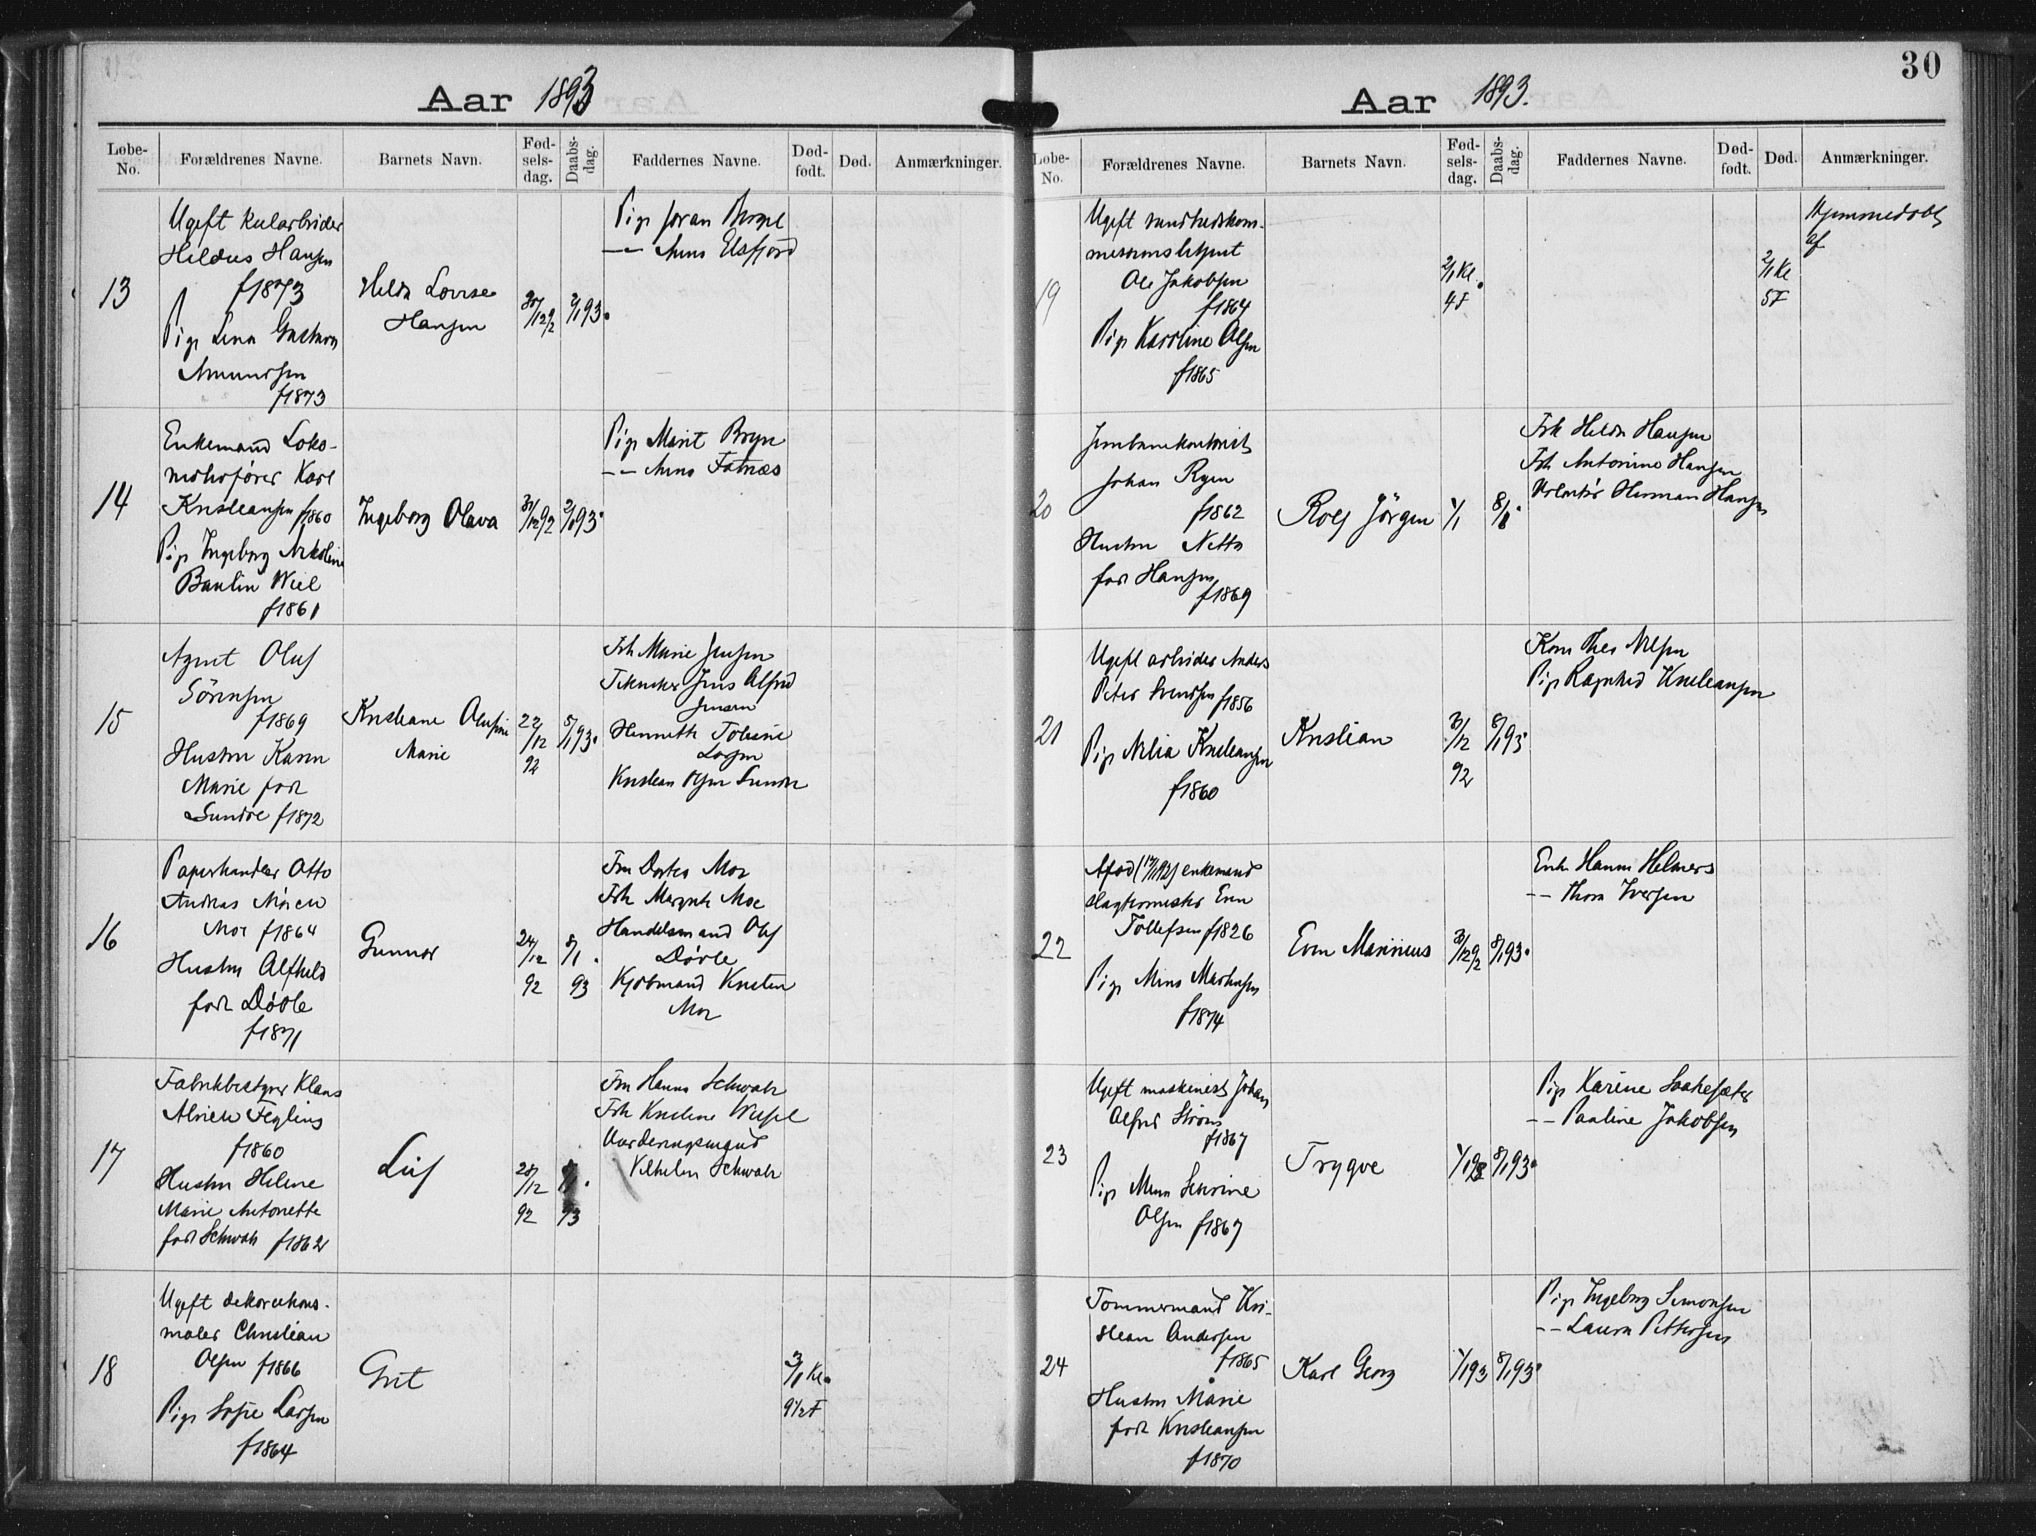 Aar 1893
Løbe-No. Forældrenes Navne. Barnets Navn. Fødselsdag. Daabsdag. Faddernes Navne. Dødfødt. Død. Anmærkninger.
13
Ugeft
Hansen
f1873
Pige Lina
Amundsen
f1873
Hansen
30/12 92
2/1 93.
Pige
-"- Anna Elsfjord
14
Enkemand Loko-
motivfører Karl
Kristiansen f1860
Pige Ingeborg Nikoline
Wiel
f1861
Ingeborg Olava
31/12 92
2/1 93.
Pige Marit Bryn
-"- Anna
15
Agent Oluf
Sörensen
f1869
Hustru Karen
Marie født
Sundøe f1872
Kristiane
Marie
22/12
92
8/1 93.
Frk Marie Jensen
Jens Alfred
Jensen
Kristian Olsen
16
Papirhandler Otto
Andreas
Moe f1864
Hustru Alfhild
født Døvle
f1871
Gunnar
24/12
92
8/1.
93
Fru Dortea Moe
Frk Margrete Moe
Handelsmand Oluf
Døvle
Kjøbmand Kristen
Moe
17
Fabrikbestyrer Klaus
f1860
Hustru Helene
Marie Antonette
født Schwab f1862
Leif
28/12
92
93
Fru Hanna Schwab
Frk Kristine
Vurderingsmand
Vilhelm Schwab
18
Ugeft dekorations-
maler Christian
Olsen f1866
Pige Sofie Larsen
f1864
Gut
3/1 Kl.
9 1/2 F
30
Aar 1893.
Løbe-No. Forældrenes Navne. Barnets Navn. Fødselsdag. Daabsdag. Faddernes Navne. Dødfødt. Død. Anmærkninger.
19
Ugeft sundhedskom-
Ole Jakobsen
f1864
Pige Karoline Olsen
f1865
2/1 Kl.
4 F
2/1 Kl
5 F
Hjemmedøbt
af
20
Jernbanekontorist
Johan Ryen
f1862
Hustru Netta
født Hansen
f1869
Rolf Jörgen
1/1
8/1.
Frk Hilda Hansen
Frk Antonine Hansen
Volontör Herman Hansen
21
Ugeft arbeider Anders
Peter Svendsen f1856
Pige Kristiansen
f1860
Kristian
31/12
92
8/1 93.
Kone Thea Nilsen
Pige Ragnhild Kristiansen
22
Afød enkemand
slagtermester Even
Tollefsen f1826
Pige Mina Mathisen
f1874
Even Marinius
31/12 92
8/1 93.
Enke Hanna Helmers
-"- Thora Iversen
23
Ugeft maskinist Johan
Alfred Ström
f1867
Pige Severine
Olsen f1867
Trygve
1/1 93
8/1 93.
Pige Karine
-"- Pauline Jakobsen
24
Tømmermand Kri-
stian Andersen
f1865
Hustru Marie
født Kristiansen
f1870
Karl Georg
1/1 93
8/1 93.
Pige Ingeborg Simonsen
-"- Laura Pettersen